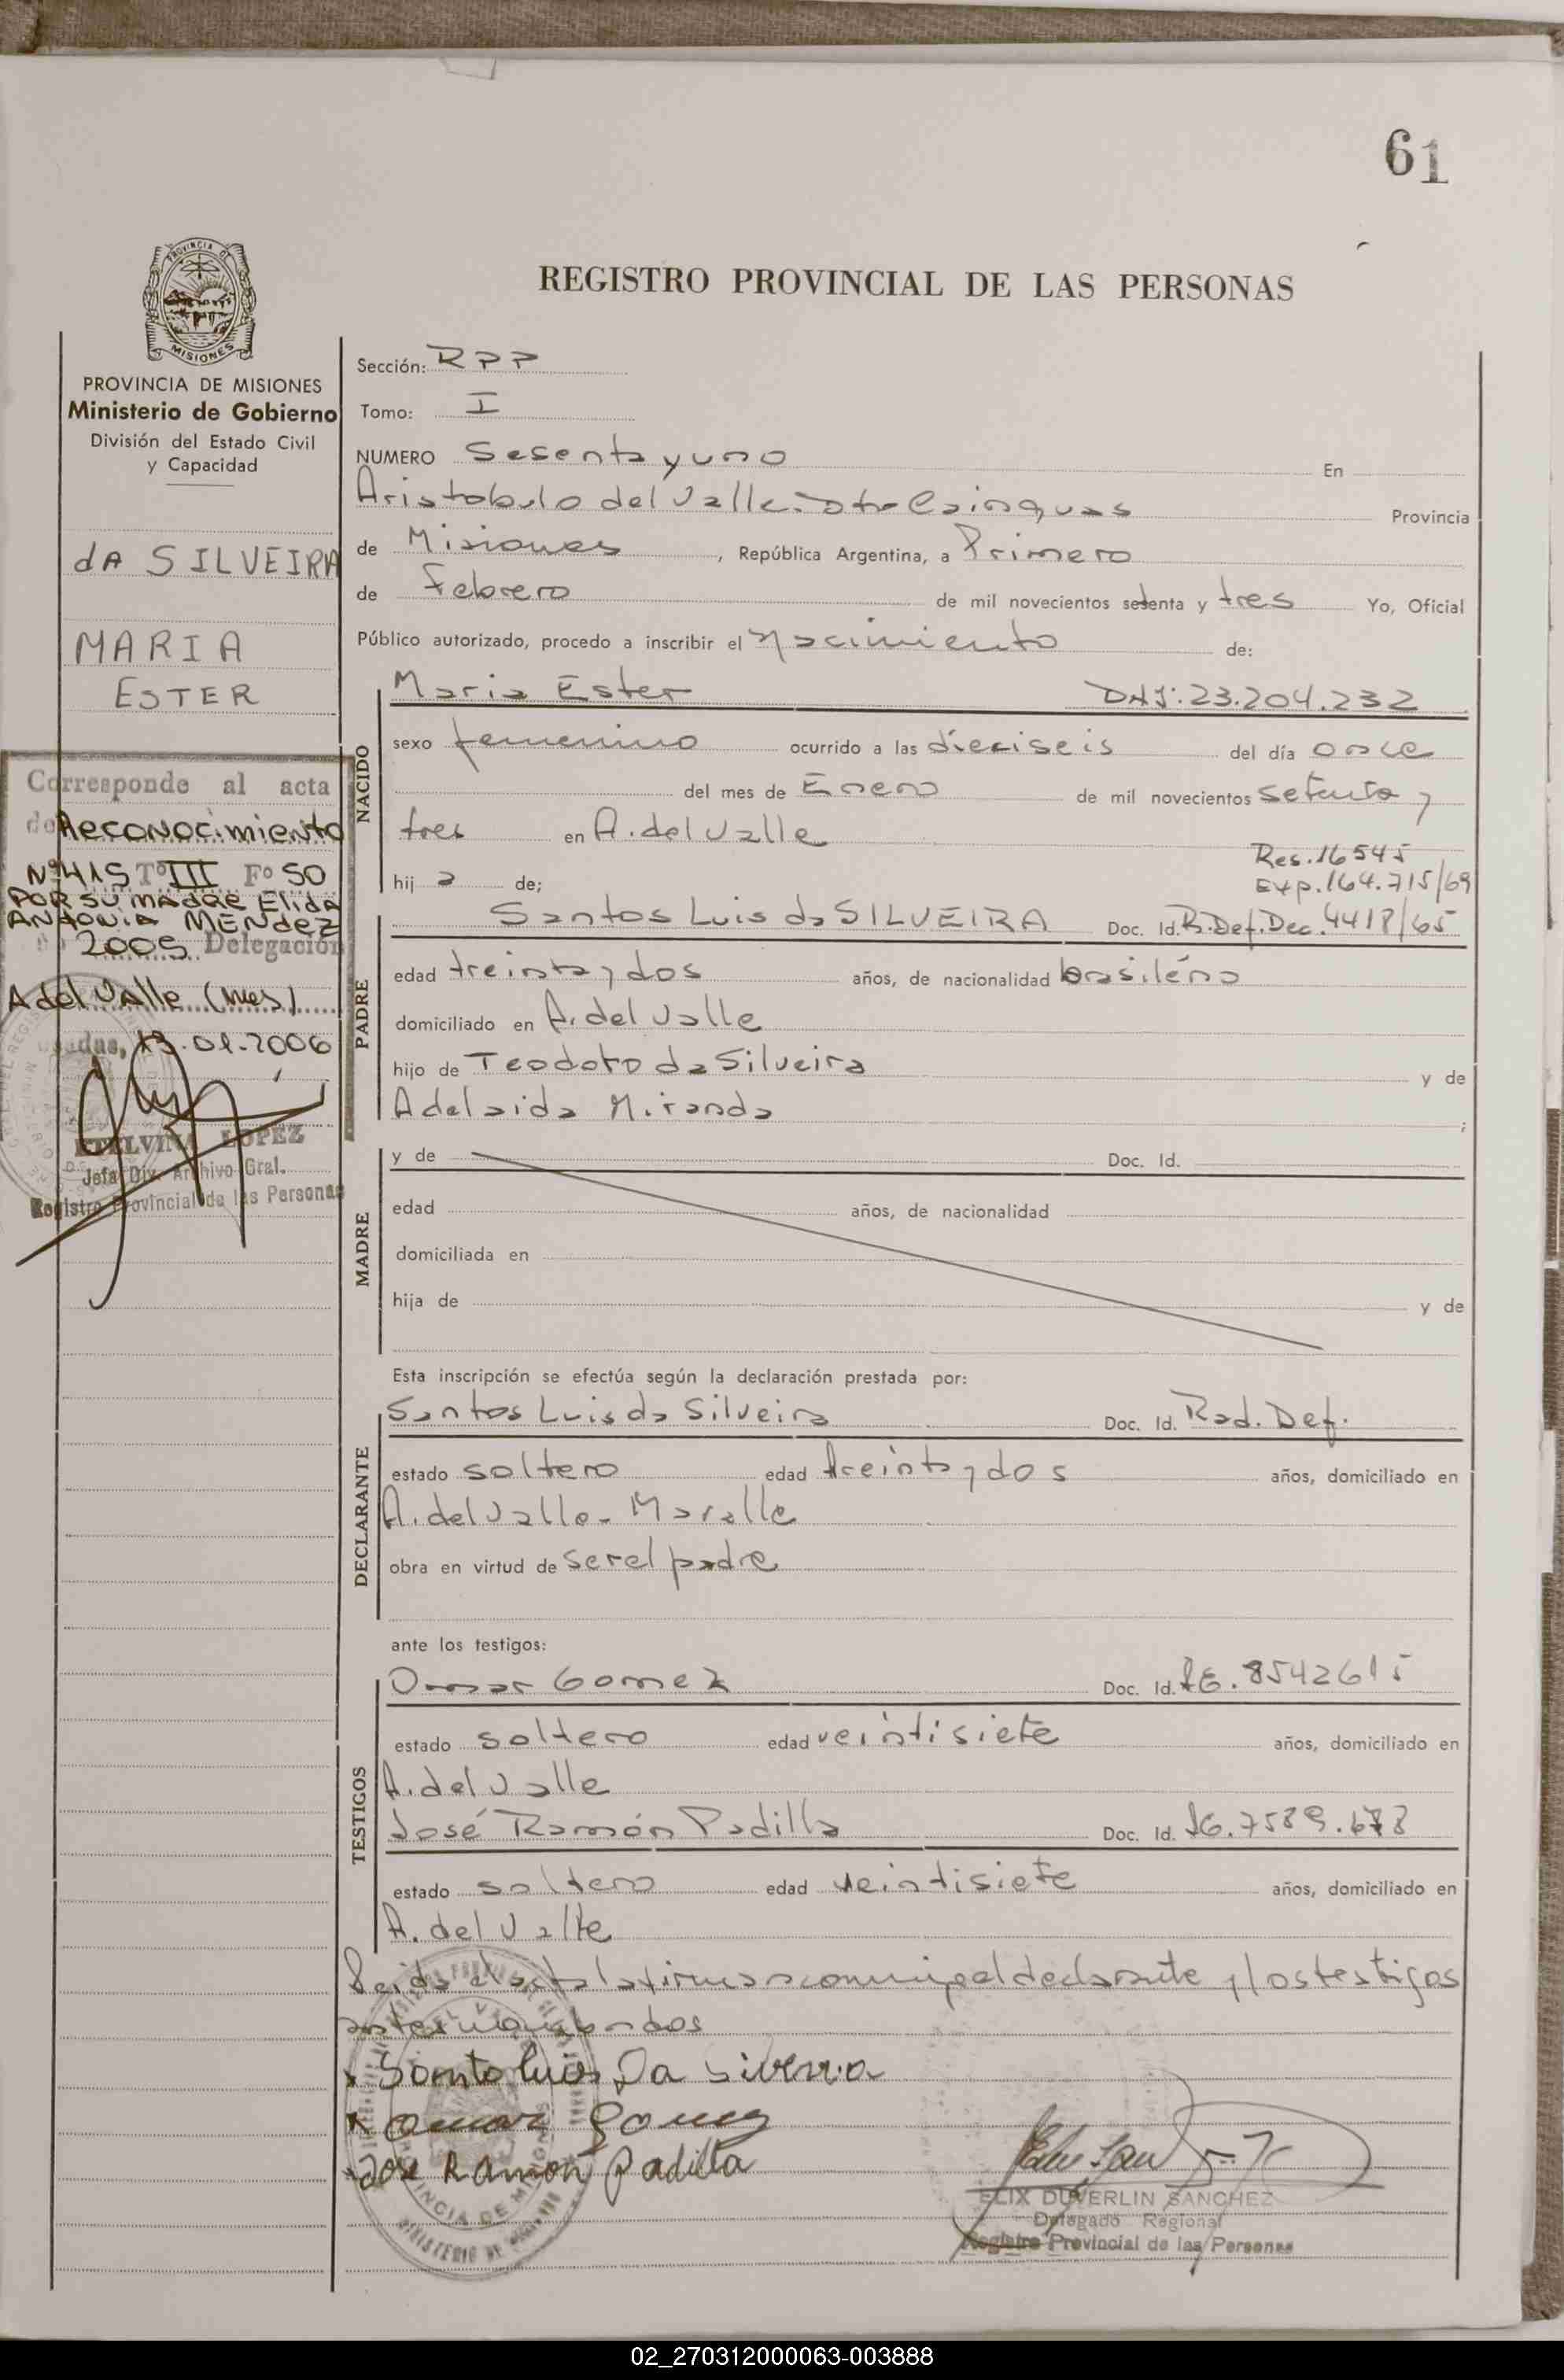 61
REGISTRO PROVINCIAL DE LAS PERSONAS
PROVINCIA DE MISIONES
Ministerio de Gobierno
División del Estado Civil
y Capacidad
dA SILVEIRA
MARIA
ESTER
Corresponde al acta
de Reconocimiento
Nº 415 Tº III Fº 50
POR SU MADRE ELIDA
ANTONIA MENDEZ
2005 Delegación
A del Valle (Mes)
13.01.2006
ETELVINA LOPEZ
Jefa Div. Archivo Gral.
Registro Provincial de las Personas
Sección: RPP
Tomo: I
NUMERO Sesenta y uno En
Aristobulo del Valle. Dto Cainguas Provincia
de Misiones, República Argentina, a Primero
de Febrero de mil novecientos setenta y tres Yo, Oficial
Público autorizado, procedo a inscribir el Nacimiento de:
NACIDO
Maria Ester DNI: 23.204.232
sexo femenino ocurrido a las dieciseis del día once
del mes de Enero de mil novecientos setenta y
tres en A. del Valle
Res. 16545
hij a de; Exp. 164.715/69
PADRE
Santos Luis da SILVEIRA Doc. Id. R. Def. Dec. 4418/65
edad treinta y dos años, de nacionalidad brasileña
domiciliado en A. del Valle
hijo de Teodoro da Silveira y de
Adelaida Miranda ;
MADRE
y de Doc. Id.
edad años, de nacionalidad
domiciliada en
hija de y de
Esta inscripción se efectúa según la declaración prestada por:
DECLARANTE
Santos Luis da Silveira Doc. Id. Rad. Def.
estado soltero edad treinta y dos años, domiciliado en
A. del Valle -
obra en virtud de ser el padre
ante los testigos:
TESTIGOS
Omar Gomez Doc. Id. LE. 8542615
estado soltero edad veintisiete años, domiciliado en
A. del Valle
José Ramón Padilla Doc. Id.
estado soltero edad veintisiete años, domiciliado en
A. del Valle
Leida el acta la firman conmigo el declarante y los testigos
antes nombrados
Santo Luis Da Siverra
Omar Gomez
Jose Ramon Padilla
ELIX DUVERLIN SANCHEZ
Delegado Regional
Registro Provincial de las Personas
02_270312000063-003888